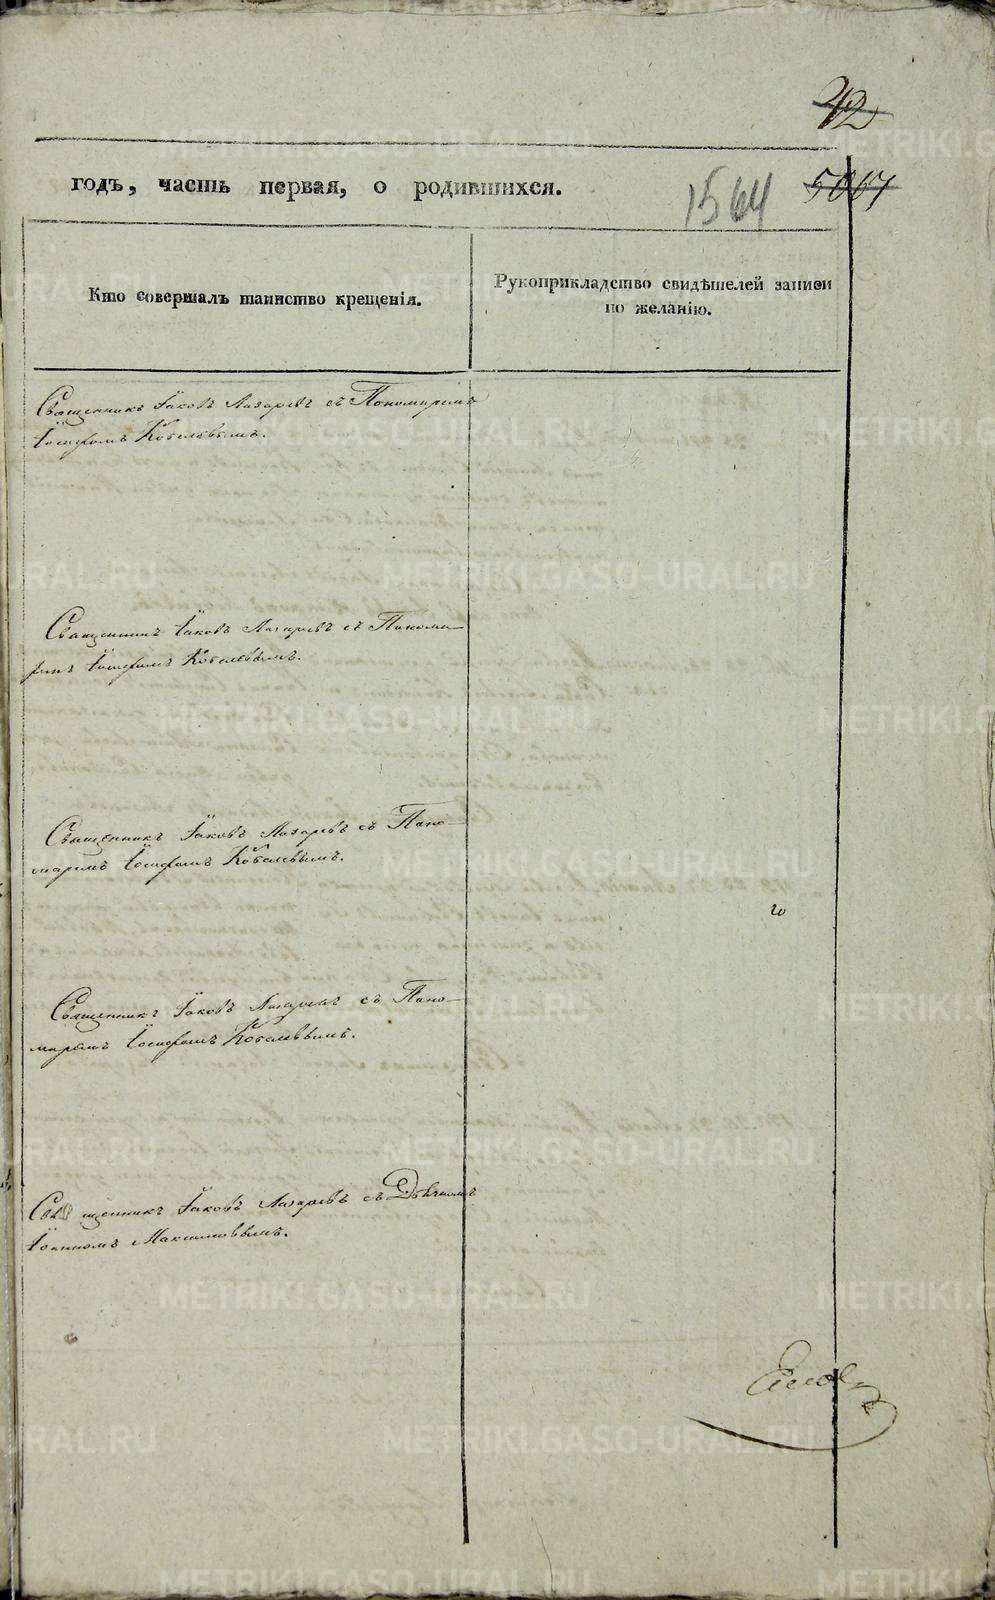 42
годъ, часть первая, о родившихся.
1564
5061
Кто совершалъ таинство крещенія.
Рукоприкладство свидѣтелей записи
по желанію.
Священникъ Іаковъ Лазаревъ съ Пономаремъ
Іосифомъ Кобелевымъ.
Священникъ Іаковъ Лазаревъ съ Понома-
ремъ Іосифомъ Кобелевымъ.
Священникъ Іаковъ Лазаревъ съ Поно-
маремъ Іосифомъ Кобелевымъ.
го
Священникъ Іаковъ Лазаревъ съ Поно-
маремъ Іосифомъ Кобелевымъ.
Священникъ Іаковъ Лазаревъ съ Дьячкомъ
Іоанномъ Максимовымъ.
METRIKI.GASO-URAL.RU